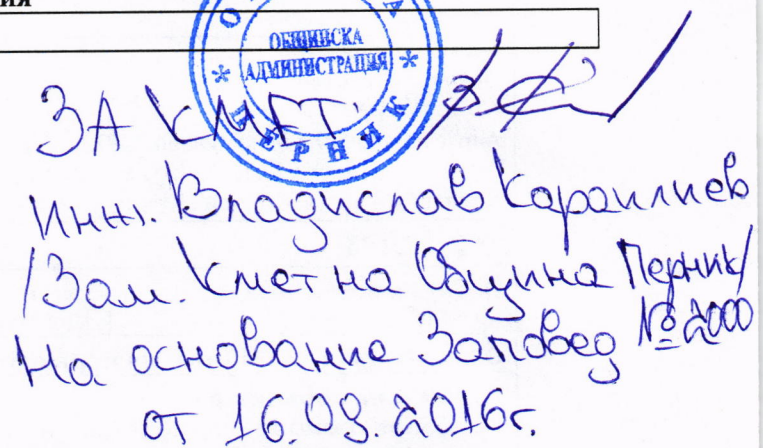 ия
ОБЩИНСКА
АДМИНИСТРАЦИЯ
ПЕРНИК
ЗА КМЕТ:
Инж. Владислав Караилиев
/Зам. Кмет на Община Перник/
На основание Заповед № 2000
от 16.09.2016г.